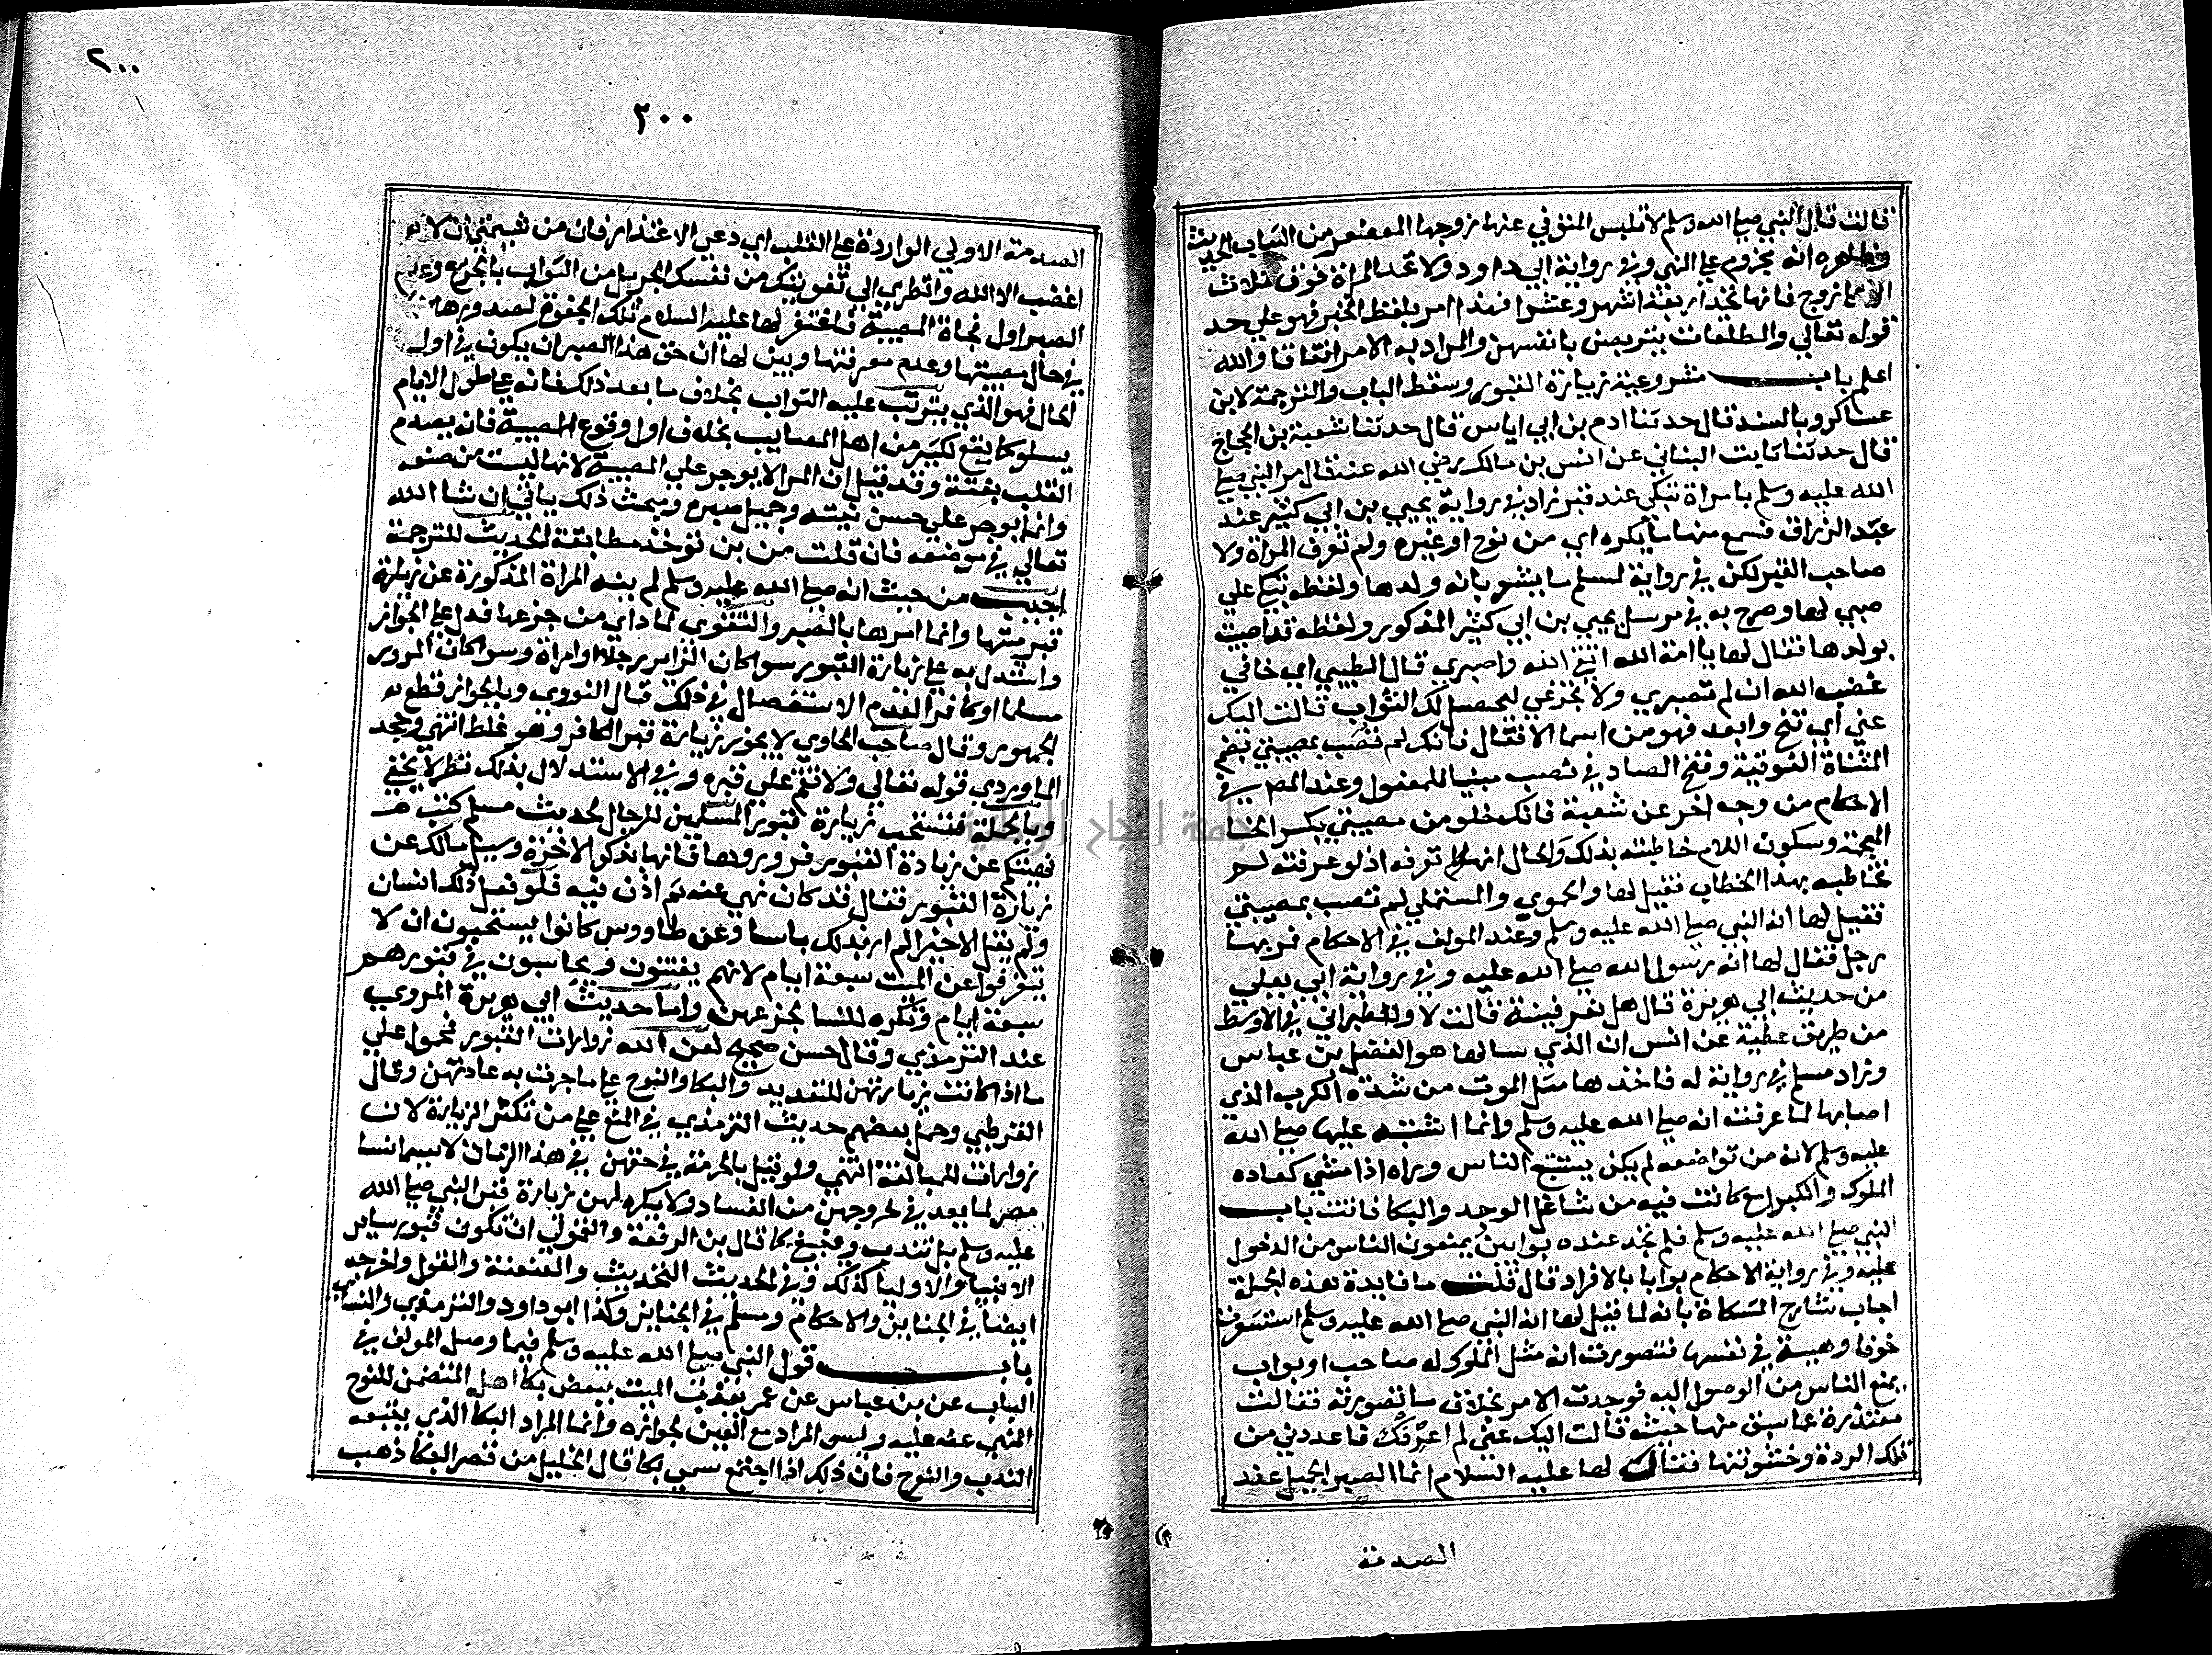 قالت قال النبي صلي الله وسلم لا تلبس المتوفي عنها زوجها المعصفر من الثياب الحديث
وظاهره انه مجزوم علي النهي وفي رواية ابي داود ولا تحد المراة فوق ثلاث
الا علي زوج فانها تحد اربعة اشهر وعشرا فهذا امر بلفظ الخبر فهو علي حد
قوله تعالي والمطلقات يتربصن بانفسهن والمراد به الامر اتفاقا والله
اعلم باب مشروعية زيارة القبور وسقط الباب والترجمة لابن
عساكر وبالسند قال حدثنا ادم بن ابي اياس قال حدثنا شعبة بن الحجاج
قال حدثنا ثابت البناني عن انس بن مالك رضي الله عنه قال مر النبي صلي
الله عليه وسلم بامراة تبكي عند قبر زاد في رواية يحيي بن ابي كثير عند
عبد الرزاق فسمع منها ما يكره اي من نوح او غيره ولم تعرف المراة ولا
صاحب القبر لكن في رواية لمسلم ما يشعر بانه ولدها ولفظه تبكي علي
صبي لها وصرح به في مرسل يحيي بن ابي كثير المذكور ولفظه قد اصيبت
بولدها فقال لها يا امة الله اتقي الله واصبري قال الطيبي اي خافي
غضب الله ان لم تصبري ولا تجزعي ليحصل لك الثواب قالت اليك
عني اي تنح وابعد فهو من اسما الافعال فانك لم تصب بمصيبتي بضم
المثناة الفوقية وفتح الصاد في تصب مبنيا للمفعول وعند المص في
الاحكام من وجه اخر عن شعبة فانك خلو من مصيبتي بكسر الخا
المعجمة وسكون اللام خاطبته بذلك والحال انها لم تعرفه اذ لو عرفته لم
تخاطبه بهذا الخطاب فقيل لها وللحموي والمستملي لم تصب بمصيبتي
فقيل لها انه النبي صلي الله عليه وسلم وعند المولف في الاحكام فمر بها
رجل فقال لها انه رسول الله صلي الله عليه وفي رواية ابي يعلي
من حديث ابي هريرة قال هل تعرفينه قالت لا وللطبراني في الاوسط
من طريق عطية عن انس ان الذي سالها هو الفضل بن عباس
وزاد مسلم في رواية له فاخذها مثل الموت من شدة الكرب الذي
اصابها لما عرفت انه صلي الله عليه وسلم وانما اشتبه عليها صلي الله
عليه وسلم لانه من تواضعه لم يكن يستتبع الناس وراه اذا مشي كعادة
الملوك والكبرا مع ما كانت فيه من شاغل الوجد والبكا فاتت باب
النبي صلي الله عليه وسلم فلم تجد عنده بوابين يمنعون الناس من الدخول
عليه وفي رواية الاحكام بوابا بالافراد قال قلت ما فايدة هذه الجملة
اجاب شارح المشكاة بانه لما قيل لها انه النبي صلي الله عليه وسلم استشعرت
خوفا وهيبة في نفسها فتصورت انه مثل الملوك له صاحب او بواب
يمنع الناس من الوصول اليه فوجدت الامر بخلاف ما تصورته فقالت
معتذرة عما سبق منها حيث قالت اليك عني لم اعرفك فاعذرني من
تلك الردة وخشونتها فقال لها عليه السلام انما الصبر الجميل عند
الصدمة
٢٠٠
٢٠٠
الصدمة الاولي الواردة علي القلب اي دعي الاعتذار فان من شيمتي ان لا
اغضب الا لله وانظري الي تفويتك من نفسك الجزيل من الثواب بالجزع وعدم
الصبر اول فجاة المصيبة فاغتفر لها عليه السلام تلك الجفوة لصدورها
في حال مصيبتها وعدم معرفتها وبين لها ان حق هذا الصبر ان يكون في اول
الحال فهو الذي يترتب عليه الثواب بخلاف ما بعد ذلك فانه علي طول الايام
يسلو كما يقع لكثير من اهل المصايب بخلاف اول وقوع المصيبة فانه يصدم
القلب بغتة وقد قيل ان المرا لا يوجر علي المصيبة لانها ليست من صنعه
وانما يوجر علي حسن نيته وجميل صبره ومبحث ذلك ياتي ان شا الله
تعالي في موضعه فان قلت من اين توخذ مطابقة الحديث للترجمة
اجيب من حيث انه صلي الله عليه وسلم لم ينه المراة المذكورة عن زيارة
قبر ميتها وانما امرها بالصبر والتقوي لما راي من جزعها فدل علي الجواز
واستدل به علي زيارة القبور سوا كان الزاير رجلا او امراة وسوا كان المزور
مسلما او كافرا لعدم الاستفصال في ذلك قال النووي وبالجواز قطع
الجمهور وقال صاحب الحاوي لا يجوز زيارة قبر الكافر وهو غلط انتهي وحجة
الماوردي قوله تعالي ولا تقم علي قبره وفي الاستدلال بذلك نظر لا يخفي
وبالجملة فتستحب زيارة قبور المسلمين للرجال لحديث مسلم كنت
نهيتكم عن زيارة القبور فزوروها فانها تذكر الاخرة وسيل مالك عن
زيارة القبور فقال قد كان نهي عنه ثم اذن فيه فلو فعل ذلك انسان
ولم يقل الا خيرا لم ار بذلك باسا وعن طاووس كانوا يستحبون ان لا
يتفرقوا عن الميت سبعة ايام لانهم يفتنون ويحاسبون في قبورهم
سبعة ايام وتكره للنسا لجزعهن واما حديث ابي هريرة المروي
عند الترمذي وقال حسن صحيح لعن الله زوارات القبور فمحمول علي
ما اذا كانت زيارتهن للتعديد والبكا والنوح علي ما جرت به عادتهن وقال
القرطبي وحمل بعضهم حديث الترمذي في المنع علي من تكثر الزيارة لان
زوارات للمبالغة انتهي ولو قيل بالحرمة في حقهن في هذا الزمان لا سيما نسا
مصر لما بعد في خروجهن من الفساد ولا يكره لهن زيارة قبر النبي صلي الله
عليه وسلم بل تندب وينبغي كما قال بن الرفعة والقمولي ان تكون قبور ساير
الانبيا والاوليا كذلك وفي الحديث التحديث والعنعنة والقول واخرجه
ايضا في الجنايز والاحكام ومسلم في الجنايز وكذا ابو داود والترمذي والنسائي
باب قول النبي صلي الله عليه وسلم فيما وصل المولف في
الباب عن بن عباس عن عمر يعذب الميت ببعض بكا اهله المتضمن للنوح
المنهي عنه عليه وليس المراد مع العين لجوازه وانما المراد البكا الذي يتبعه
الندب والنوح فان ذلك اذا اجتمع سمي بكا قال الخليل من قصر البكا ذهب